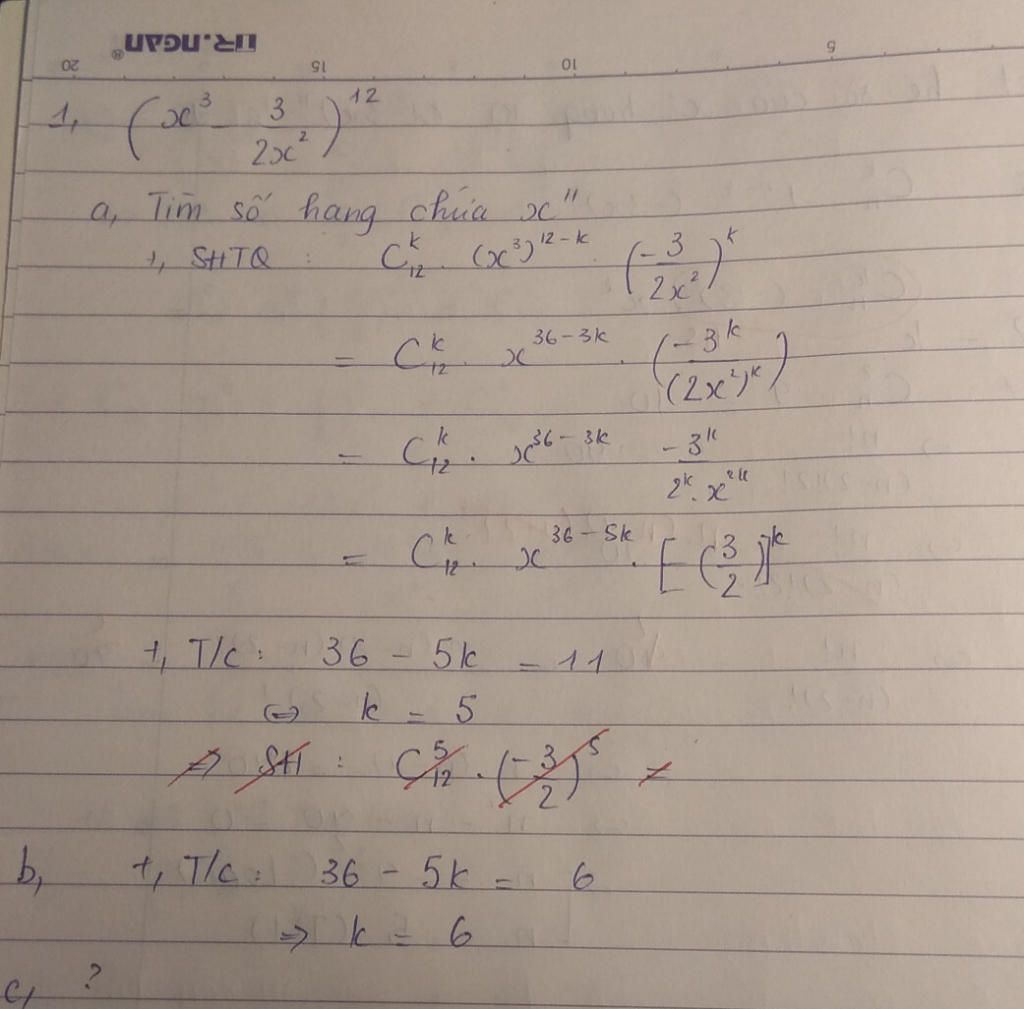 TR.NGAN®
20 15 10 5
1, (x³ - 3/2x²)¹²
a, Tìm số hạng chứa x¹¹
+, SHTQ : C₁₂ᵏ . (x³)¹²⁻ᵏ . (-3/2x²)ᵏ
= C₁₂ᵏ . x³⁶⁻³ᵏ . (-3ᵏ/(2x²)ᵏ)
= C₁₂ᵏ . x³⁶⁻³ᵏ -3ᵏ/2ᵏ . x²ᵏ
= C₁₂ᵏ . x³⁶⁻⁵ᵏ . [-(3/2)]ᵏ
+, T/c : 36 - 5k = 11
⇔ k = 5
⇒ SH : C₁₂⁵ . (-3/2)⁵ =
b, +, T/c : 36 - 5k = 6
⇒ k = 6
c, ?